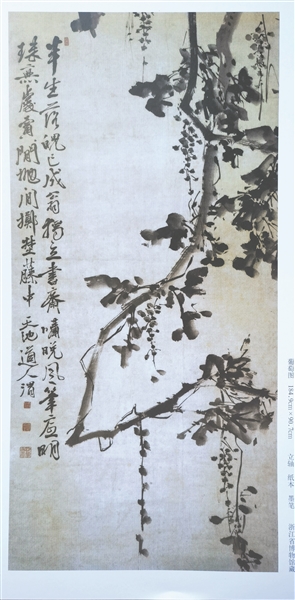 半生落魄已成翁獨立書齋嘯晚風筆底明
珠無處賣閒拋閒擲埜藤中 天池道人渭
葡萄图 184.9cm×90.7cm 立轴 纸本 墨笔 浙江省博物馆藏